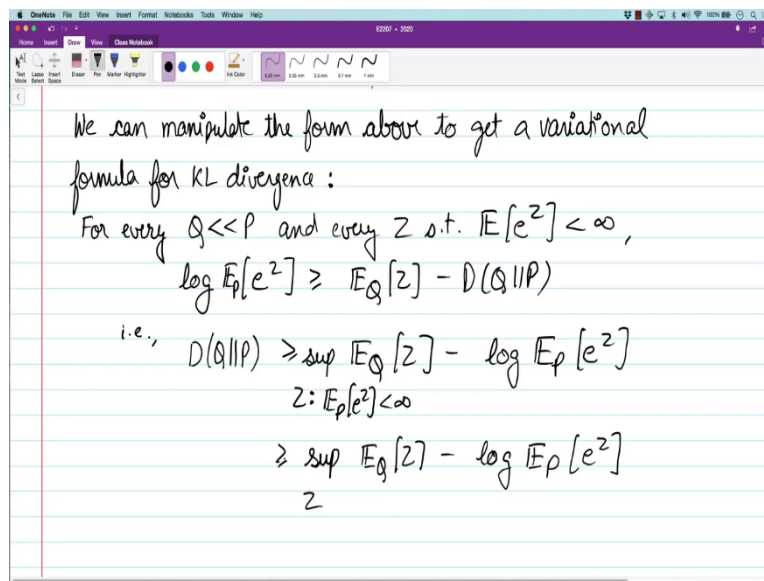 OneNote File Edit View Insert Format Notebooks Tools Window Help 100%
E2207 - 2020
Home Insert Draw View Class Notebook
Text Mode Lasso Select Insert Space Eraser Pen Marker Highlighter Ink Color 0.25 mm 0.35 mm 0.5 mm 0.7 mm 1 mm
We can manipulate the form above to get a variational
formula for KL divergence :
For every Q<<P and every Z s.t. 𝔼[e^Z] < ∞,
log 𝔼_P[e^Z] ≥ 𝔼_Q[Z] - D(Q||P)
i.e., D(Q||P) ≥ sup 𝔼_Q[Z] - log 𝔼_P[e^Z]
Z: 𝔼_P[e^Z]<∞
≥ sup 𝔼_Q[Z] - log 𝔼_P[e^Z]
Z